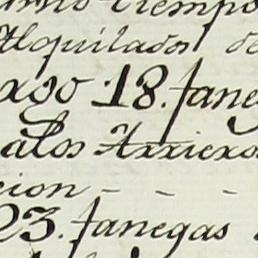 mo tiempo
Alquilados de
xso 18. fane
alos Arriero
cion - - -
23. fanegas